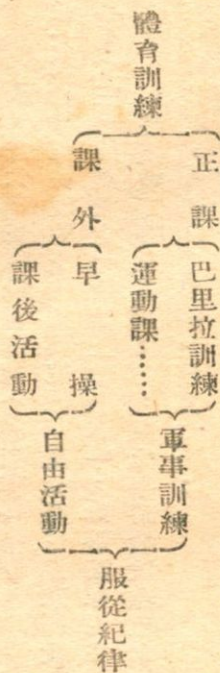 體育訓練
正課
巴里拉訓練
運動課……
軍事訓練
課外
早操
課後活動
自由活動
服從紀律